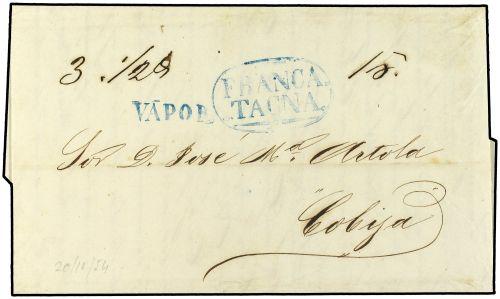 3. 1/2 15.
FRANCA
VAPOR TACNA.
Sor D. José Ma. Artola
Cobija
20/10/54